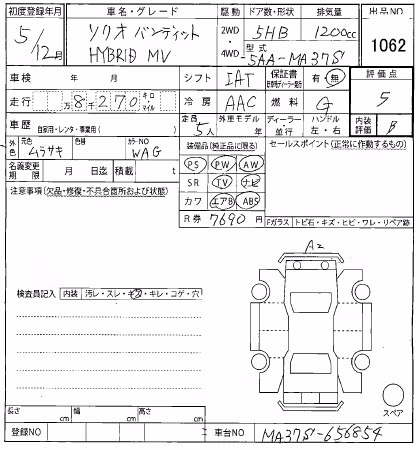 初度登録年月 車名・グレード 駆動 ドア数・形状 排気量 出品NO
5/12月 ソリオ バンディット 2WD 5HB 1200cc 1062
HYBRID MV 4WD 型式 5AA-MA37S
車検 年 月 シフト IAT 保証書 有・無 評価点
走行 万 8千270 キロ・マイル 冷房 AAC 燃料 G 5
車歴 自家用・レンタ・事業用( ) 定員 5人 外車モデル 年 ディーラー・並行 ハンドル 左・右 内装評価 B
外色 元色 ムラサキ 色替 カラーNO WAG 装備品(純正品に限る) セールスポイント(正常に作動するもの)
名義変更期限 月 日迄 積載 t PS PW AW
注意事項(欠品・修復・不具合箇所および状態) SR TV ナビ
カワ エアB ABS
R券 7690円 Fガラス トビ石・キズ・ヒビ・ワレ・リペア跡
A2
検査員記入 内装 汚レ・スレ・キズ・キレ・コゲ・穴
スペア
長さ cm 幅 cm 高さ cm
登録NO 車台NO MA37S-656854